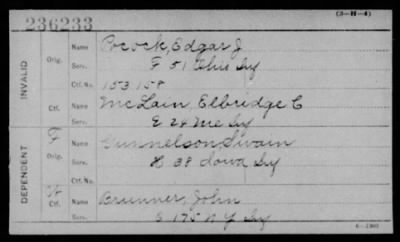 (3-H-4)
236233
INVALID
Orig.
Name Pocock, Edgar J.
Serv. F 51 Ohio Inf
Ctf. No. 153158
Ctf.
Name McLain, Elbridge C
Serv. E 24 Me Inf
DEPENDENT
F
Orig.
Name Gunnelson, Swain
Serv. B 38 Iowa Inf
Ctf. No.
Ctf.
Name Brunner, John
Serv. E 175 N Y Inf